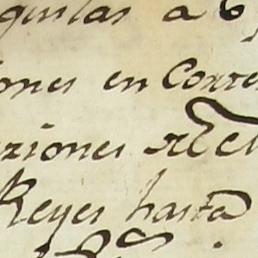 quilas a 6
ones en Corre
ziones
Reyes hasta